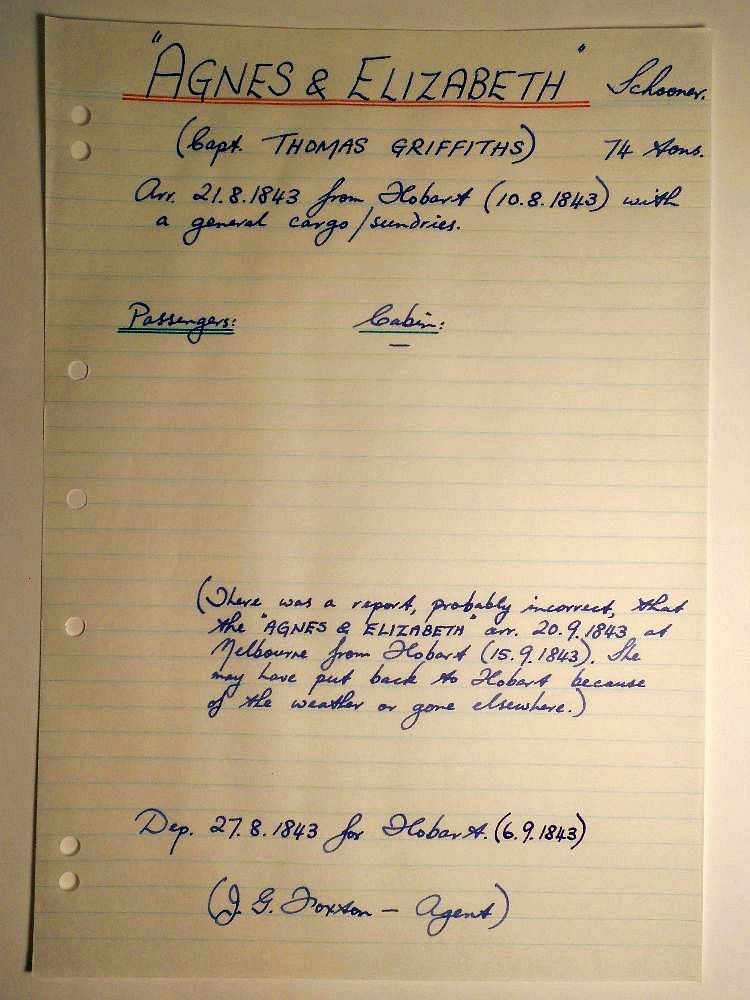 "AGNES & ELIZABETH" Schooner.
(Capt. THOMAS GRIFFITHS) 74 tons.
Arr. 21.8.1843 from Hobart (10.8.1843) with
a general cargo/sundries.
Passengers: Cabin:
—
(There was a report, probably incorrect, that
the "AGNES & ELIZABETH" arr. 20.9.1843 at
Melbourne from Hobart (15.9.1843). She
may have put back to Hobart because
of the weather or gone elsewhere.)
Dep. 27.8.1843 for Hobart. (6.9.1843)
(J. G. Foxton — Agent)